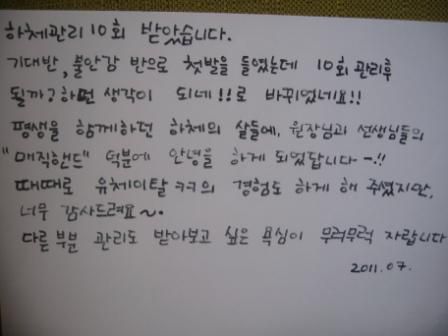 하체관리 10회 받았습니다.
기대반, 불안감 반으로 첫발을 들였는데 10회 관리후
될까? 하던 생각이 되네!! 로 바뀌었네요!!
평생을 함께하던 하체의 살들에, 원장님과 선생님들의
"매직핸드" 덕분에 안녕을 하게 되었답니다-.!!
때때로 유체이탈 ㅋㅋ의 경험도 하게 해 주셨지만,
너무 감사드려요~.
다른부분 관리도 받아보고 싶은 욕심이 무럭무럭 자랍니다
2011.07.